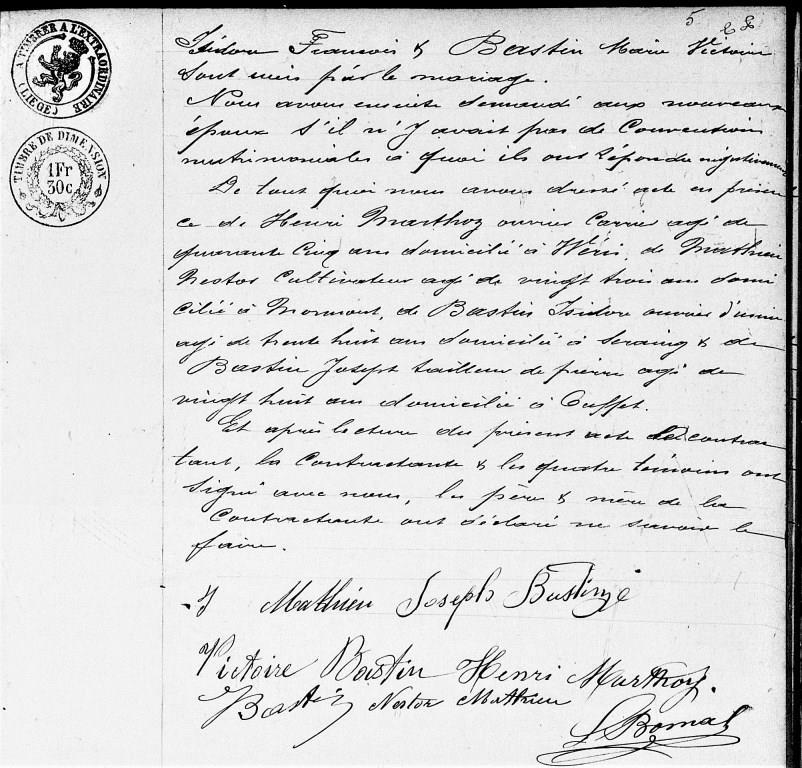 5
A TIMBRER A L'EXTRAORDINAIRE
(LIEGE)
TIMBRE DE DIMENSION
1Fr
30c
Isidore François & Bastin Marie Victoire
sont unis par le mariage.
Nous avons ensuite demandé aux nouveaux
époux s'il n'y avait pas de Conventions
matrimoniales à quoi ils ont répondu négativement
De tout quoi nous avons dressé acte en présen
ce de Henri Marthoz ouvrier Carrier agé de
quarante cinq ans domicilié à Wéris, de Mathieu
Nestor Cultivateur agé de vingt trois ans domi
cilié à Mormont, de Bastin Isidore ouvrier d'usine
agé de trente huit ans domicilié à Seraing & de
Bastin Joseph tailleur de pierre agé de
vingt huit ans domicilié à Ouffet.
Et après lecture du présent acte le contrac
tant, la Contractante & les quatre témoins ont
signé avec nous, les père & mère de la
Contractante ont déclaré ne savoir le
faire.
Mathieu Joseph Bastin
Victoire Bastin Henri Marthoz.
Bastin Nestor Mathieu
Bomal